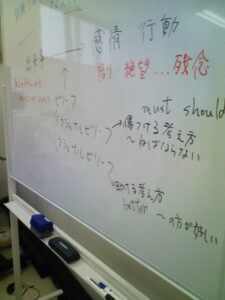 出来事 → 感情 行動
怒り 絶望 … 残念
must should
ビリーフ
イラショナルビリーフ → 傷つける考え方
〜ねばならない
ラショナルビリーフ
助ける考え方
better 〜の方が好しい